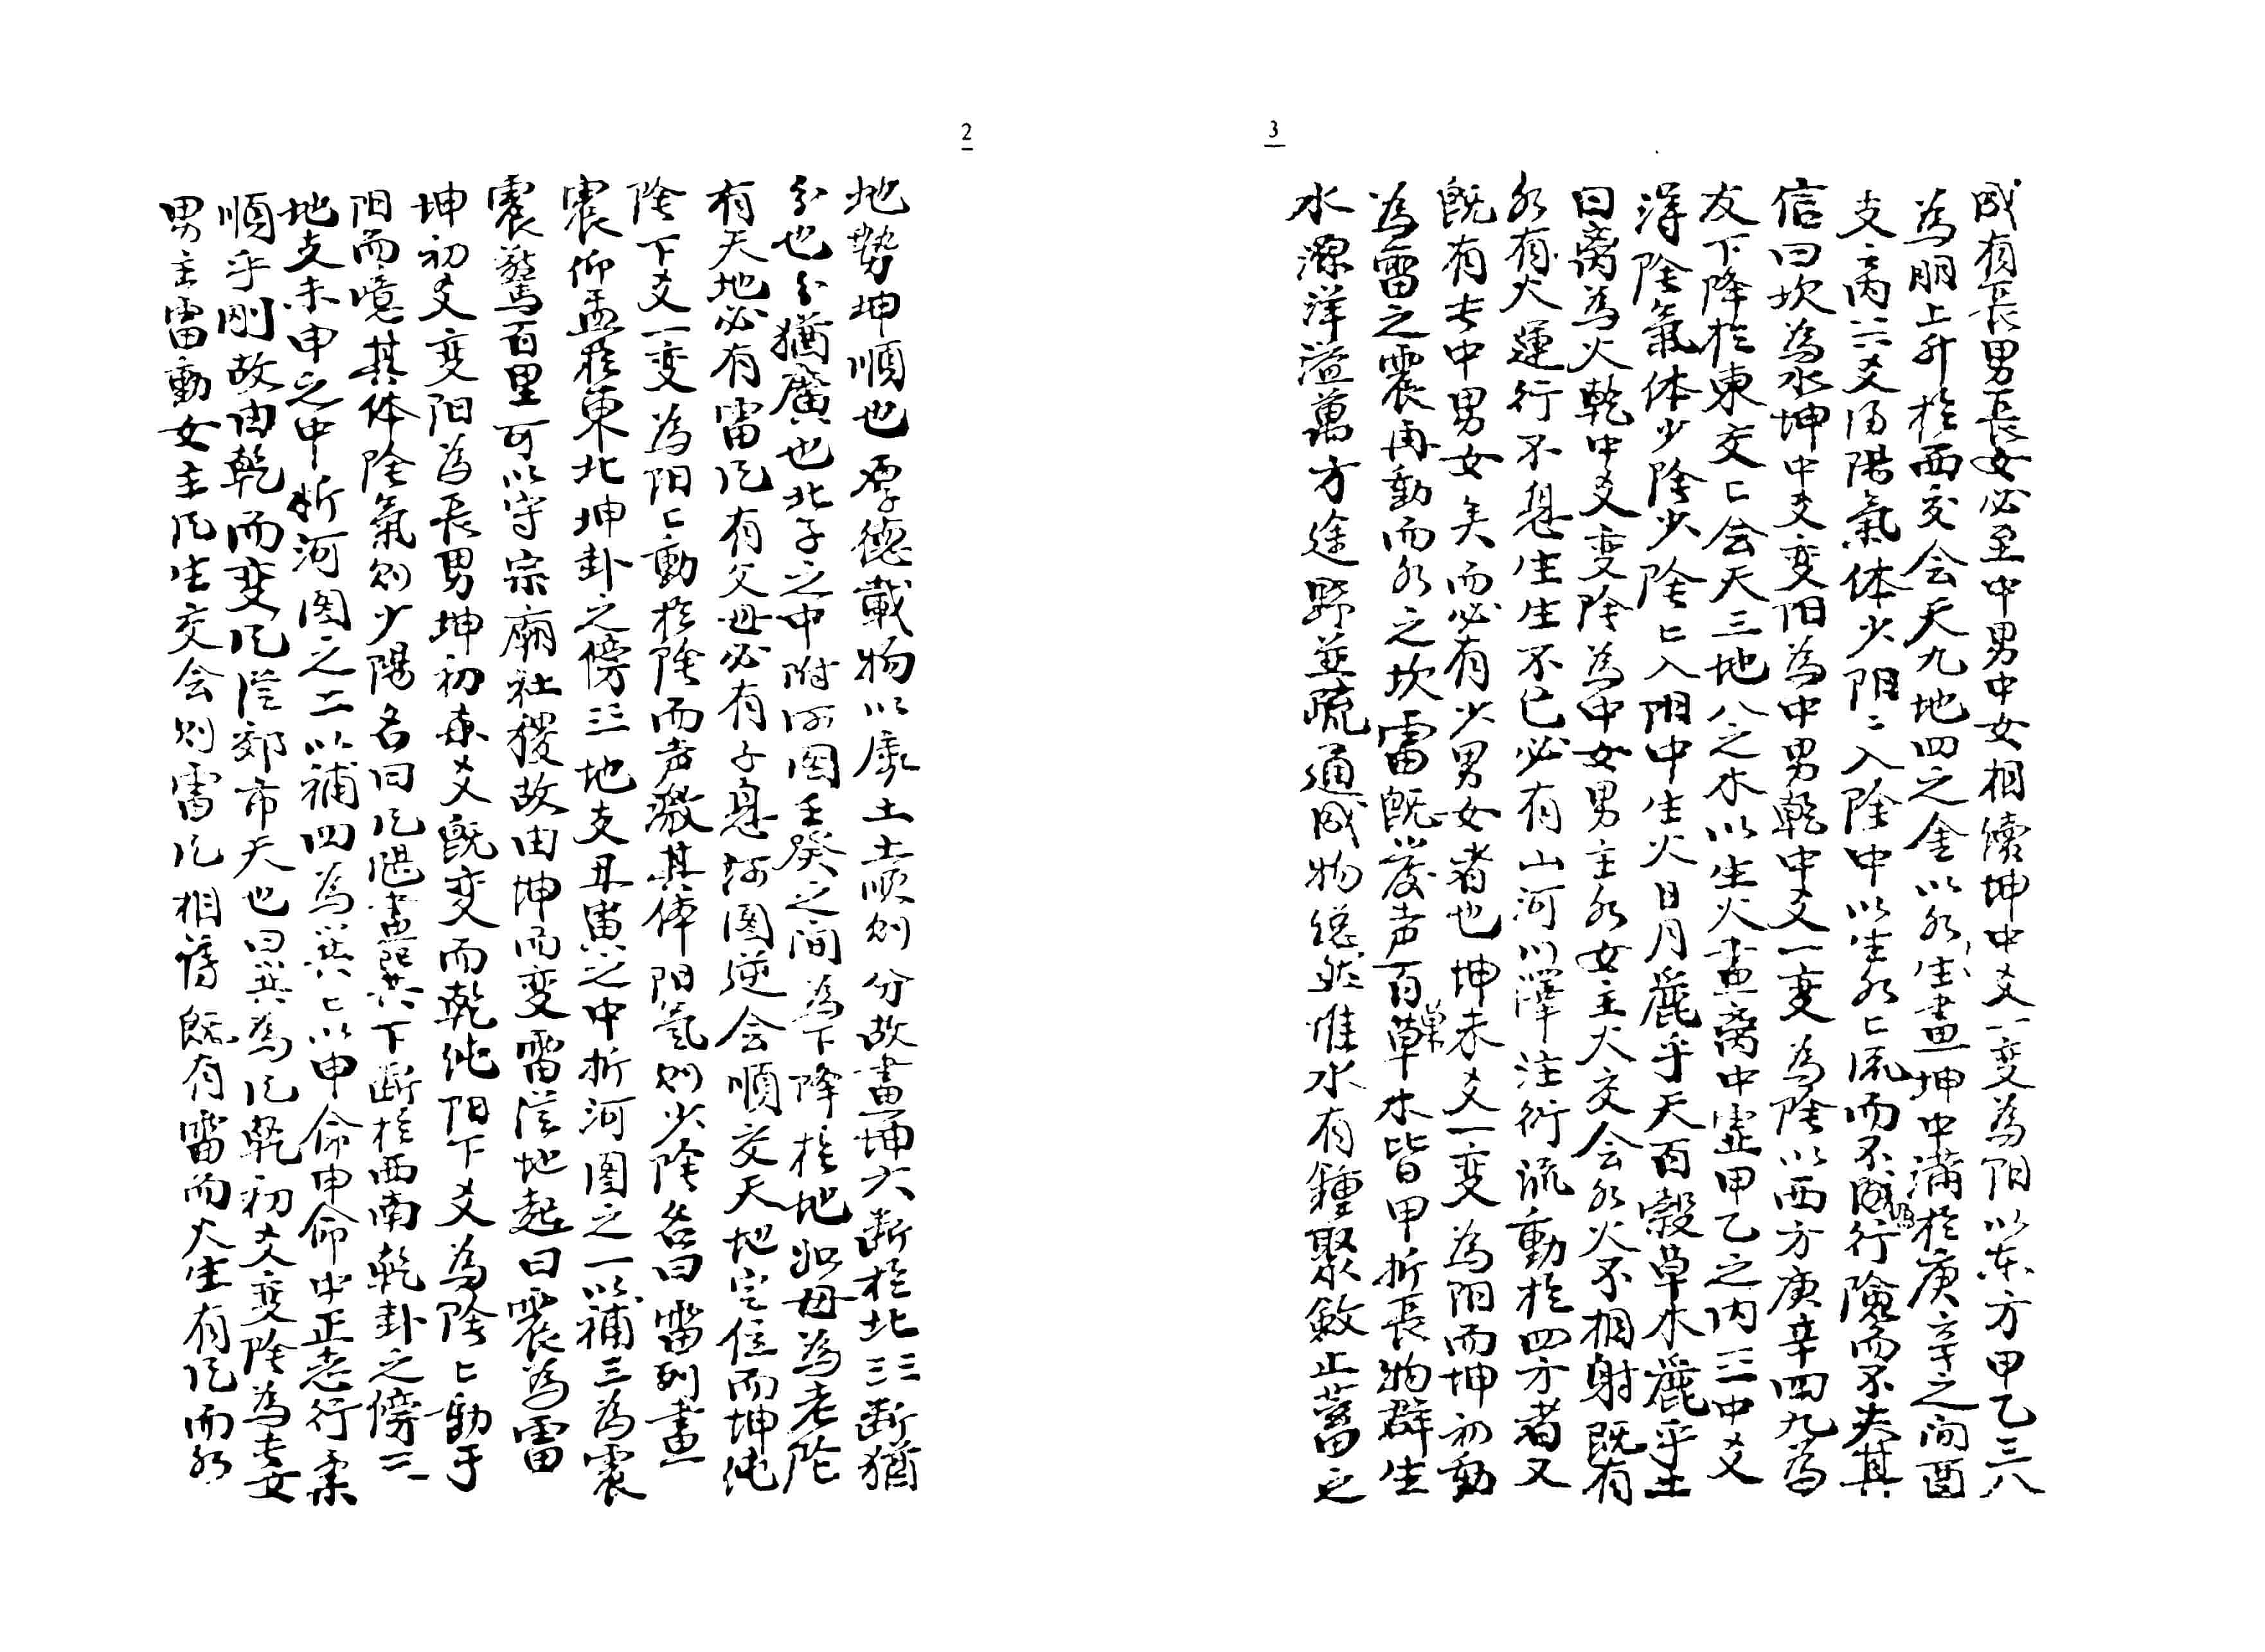 2
地勢坤順也厚德載物以康土土順则分故畫坤六断於北三三断猶
分也分猶廣也北子之中附河图壬癸之间為下降於地如母為老陰
有天地必有雷风有父母必有子息河图逆会順交天地定位而坤純
陰下爻一变為阳阳動於陰而声激其体阳氣则少陰名曰雷列畫
震仰盂於東北坤卦之傍三地支丑寅之中折河图之一以補三為震
震驚百里可以守宗廟社稷故由坤而变雷從地起曰震為雷
坤初爻变阳為長男坤初末爻既变而乾純阳下爻為陰陰動于
阳而噫其体陰氣则少陽名曰风風畫巽下断於西南乾卦之傍三
地支未申之中折河图之二以補四為巽巽以申命申命中正志行柔
順乎刚故由乾而变风從郊市天也曰巽為风乾初爻变陰為長女
男主雷動女主风生交会则雷风相薄既有雷而火生有风而水
3
成有長男長女必至中男中女相續坤中爻一变為阳以东方甲乙三八
為朋上升於西交会天九地四之金以水生畫坤中滿於庚辛之间酉
支之内三爻得陽氣体少阳阳入陰中以生水水流而不盈行險而不失其
信曰坎為水坤中爻变阳為中男乾中爻一变為陰以西方庚辛四九為
友下降於東交交会天三地八之木以生火畫离中虛甲乙之内三中爻
得陰氣体少陰少陰陰入阳中生火日月麗乎天百穀草木麗乎土
曰离為火乾中爻变陰為中女男主水女主火交会水火不相射既有
水有火運行不息生生不已必有山河川澤注衍流動於四方者又
既有長中男女矣而必有少男女者也坤末爻一变為阳而坤初動
為雷之震再動而水之坎雷既發声百果草木皆甲折長物群生
水深洋溢萬方途野並疏通成物総然惟水有鍾聚斂止蓄之